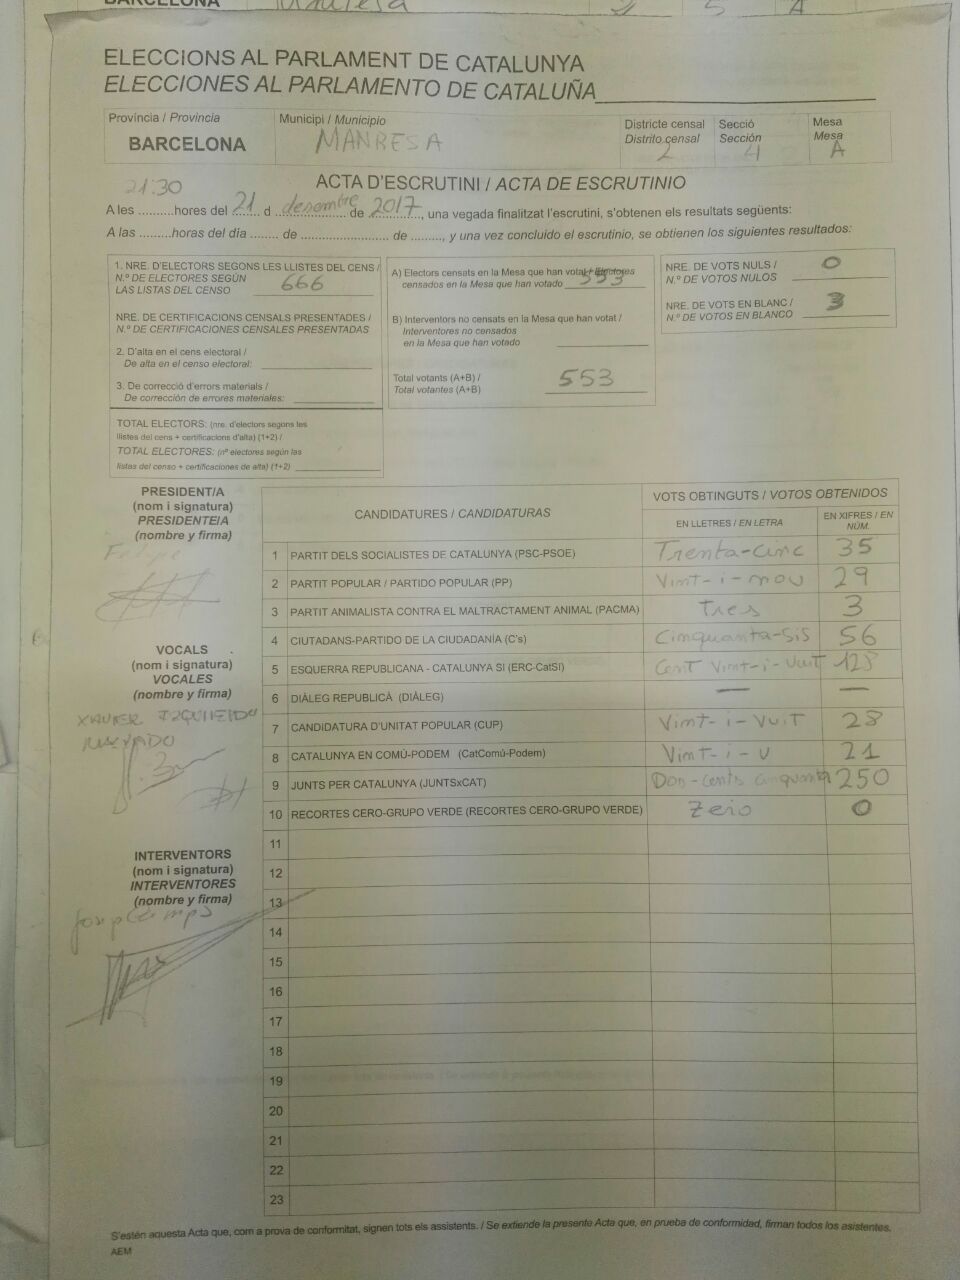 BARCELONA
ELECCIONS AL PARLAMENT DE CATALUNYA
ELECCIONES AL PARLAMENTO DE CATALUÑA
Província / Provincia
BARCELONA
Municipi / Municipio
MANRESA
Districte censal
Distrito censal
2
Secció
Sección
4
Mesa
Mesa
A
ACTA D'ESCRUTINI / ACTA DE ESCRUTINIO
21:30
A les ..........hores del 21 d desembre de 2017, una vegada finalitzat l'escrutini, s'obtenen els resultats següents:
A las .........horas del día ........ de ......................... de ........., y una vez concluido el escrutinio, se obtienen los siguientes resultados:
1. NRE. D'ELECTORS SEGONS LES LLISTES DEL CENS /
N.º DE ELECTORES SEGÚN
LAS LISTAS DEL CENSO 666
NRE. DE CERTIFICACIONS CENSALS PRESENTADES /
N.º DE CERTIFICACIONES CENSALES PRESENTADAS
2. D'alta en el cens electoral /
De alta en el censo electoral:
3. De correcció d'errors materials /
De corrección de errores materiales:
TOTAL ELECTORS: (nre. d'electors segons les
llistes del cens + certificacions d'alta) (1+2) /
TOTAL ELECTORES: (nº electores según las
listas del censo + certificaciones de alta) (1+2)
A) Electors censats en la Mesa que han votat / Electores
censados en la Mesa que han votado 553
B) Interventors no censats en la Mesa que han votat /
Interventores no censados
en la Mesa que han votado
Total votants (A+B) /
Total votantes (A+B) 553
NRE. DE VOTS NULS /
N.º DE VOTOS NULOS 0
NRE. DE VOTS EN BLANC /
N.º DE VOTOS EN BLANCO 3
PRESIDENT/A
(nom i signatura)
PRESIDENTE/A
(nombre y firma)
Felipe
VOCALS
(nom i signatura)
VOCALES
(nombre y firma)
XAVIER IZQUIERDO
INTERVENTORS
(nom i signatura)
INTERVENTORES
(nombre y firma)
CANDIDATURES / CANDIDATURAS
VOTS OBTINGUTS / VOTOS OBTENIDOS
EN LLETRES / EN LETRA
EN XIFRES / EN
NÚM.
1 PARTIT DELS SOCIALISTES DE CATALUNYA (PSC-PSOE) Trenta-cinc 35
2 PARTIT POPULAR / PARTIDO POPULAR (PP) Vint-i-nou 29
3 PARTIT ANIMALISTA CONTRA EL MALTRACTAMENT ANIMAL (PACMA) Tres 3
4 CIUTADANS-PARTIDO DE LA CIUDADANÍA (C's) Cinquanta-sis 56
5 ESQUERRA REPUBLICANA - CATALUNYA SÍ (ERC-CatSÍ) Cent Vint-i-Vuit 128
6 DIÀLEG REPUBLICÀ (DIÀLEG) — —
7 CANDIDATURA D'UNITAT POPULAR (CUP) Vint-i-Vuit 28
8 CATALUNYA EN COMÚ-PODEM (CatComú-Podem) Vint-i-u 21
9 JUNTS PER CATALUNYA (JUNTSxCAT) Dos-cents cinquanta 250
10 RECORTES CERO-GRUPO VERDE (RECORTES CERO-GRUPO VERDE) Zero 0
11
12
13
14
15
16
17
18
19
20
21
22
23
S'estén aquesta Acta que, com a prova de conformitat, signen tots els assistents. / Se extiende la presente Acta que, en prueba de conformidad, firman todos los asistentes.
AEM